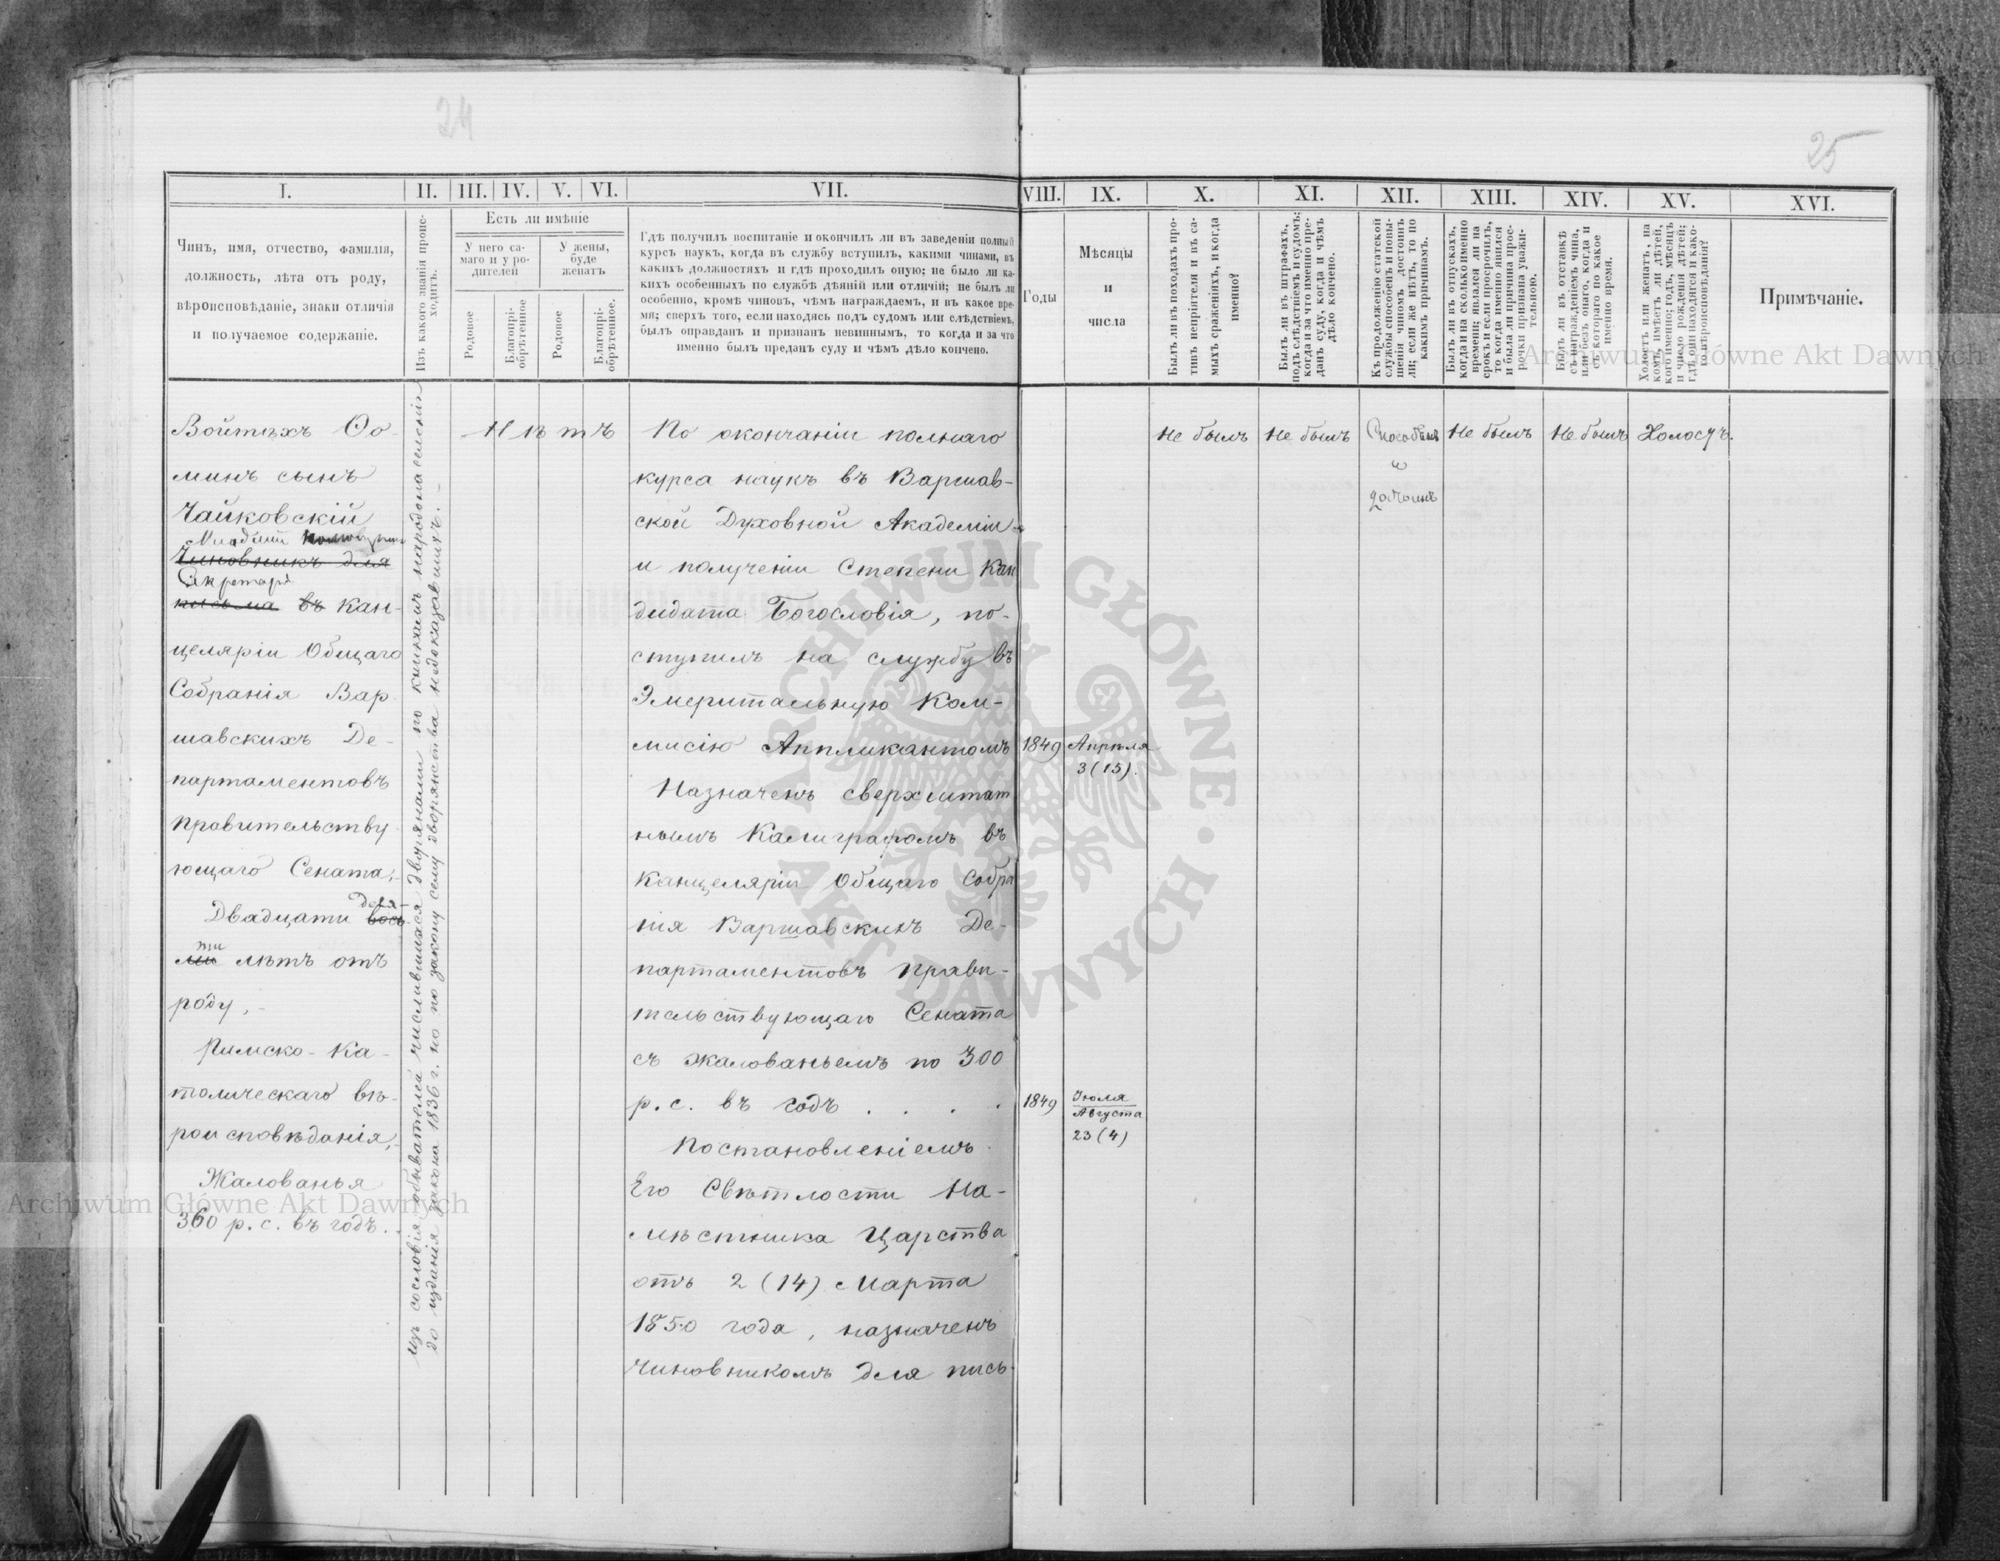 24
25
I.
II.
III.
IV.
V.
VI.
VII.
VIII.
IX.
X.
XI.
XII.
XIII.
XIV.
XV.
XVI.
Чинъ, имя, отчество, фамилія,
должность, лѣта отъ роду,
вѣроисповѣданіе, знаки отличія
и получаемое содержаніе.
Изъ какого званія проис-
ходитъ.
Есть ли имѣніе
У него са-
маго и у ро-
дителей
У жены,
буде
женатъ
Родовое
Благопрі-
обрѣтенное
Родовое
Благопрі-
обрѣтенное.
Гдѣ получилъ воспитаніе и окончилъ ли въ заведеніи полный
курсъ наукъ, когда въ службу вступилъ, какими чинами, въ
какихъ должностяхъ и гдѣ проходилъ оную; не было ли ка-
кихъ особенныхъ по службѣ дѣяній или отличій; не былъ ли
особенно, кромѣ чиновъ, чѣмъ награждаемъ, и въ какое вре-
мя; сверхъ того, если находясь подъ судомъ или слѣдствіемъ,
былъ оправданъ и признанъ невиннымъ, то когда и за что
именно былъ преданъ суду и чѣмъ дѣло кончено.
Годы
Мѣсяцы
и
числа
Былъ ли въ походахъ про-
тивъ непріятеля и въ са-
мыхъ сраженіяхъ, и когда
именно?
Былъ ли въ штрафахъ,
подъ слѣдствіемъ и судомъ:
когда и за что именно пре-
данъ суду, когда и чѣмъ
дѣло кончено.
Къ продолженію статской
службы способенъ и повы-
шенія чиномъ достоинъ
ли; если же нѣтъ, то по
какимъ причинамъ.
Былъ ли въ отпускахъ,
когда и на сколько именно
времени; явился ли на
срокъ и если просрочилъ,
то когда именно явился
и была ли причина прос-
рочки признана уважи-
тельною.
Былъ ли въ отставкѣ
съ награжденіемъ чина,
или безъ онаго, когда и
съ котораго по какое
именно время.
Холостъ или женатъ, на
комъ, имѣетъ ли дѣтей,
кого именно; годъ, мѣсяцъ
и число рожденія дѣтей;
гдѣ они находятся и како-
го вѣроисповѣданія?
Примѣчаніе.
Войтѣхъ Ѳо-
минъ сынъ
Чайковскій
Младшій
Чиновникъ для
Секретаря
письма въ Кан-
целяріи Общаго
Собранія Вар-
шавскихъ Де-
партаментовъ
Правительству-
ющаго Сената,
девя-
Двадцати вось-
ти
ми лѣтъ отъ
роду,
Римско-Ка-
толическаго вѣ-
роисповѣданія,
Жалованья
360 р. с. въ годъ.
изъ сословія обывателей числившихся дворянами по книгамъ народонаселенія
до изданія закона 1836 г. но по закону сему дворянства недоказавшихъ.
Нѣтъ
По окончаніи полнаго
курса наукъ въ Варшав-
ской Духовной Академіи
и полученіи Степени Кан
дидата Богословія, по-
ступилъ на службу въ
Эмеритальную Ком-
мисію Аппликантомъ
1849
Апрѣля
3 (15).
Назначенъ сверхштат
нымъ Калиграфомъ въ
Канцеляріи Общаго Собра
нія Варшавскихъ Де-
партаментовъ Прави-
тельствующаго Сената
съ жалованьемъ по 300
р. с. въ годъ . . . .
1849
Іюля
Августа
23 (4)
Постановленіемъ
Его Свѣтлости На-
мѣстника Царства
отъ 2 (14) Марта
1850 года, назначенъ
Чиновникомъ для пись-
Не былъ
Не былъ
Способенъ
и
достоинъ
Не былъ
Не былъ
Холостъ.
ARCHIWUM GŁÓWNE • AKT DAWNYCH •
Archiwum Główne Akt Dawnych
Archiwum Główne Akt Dawnych